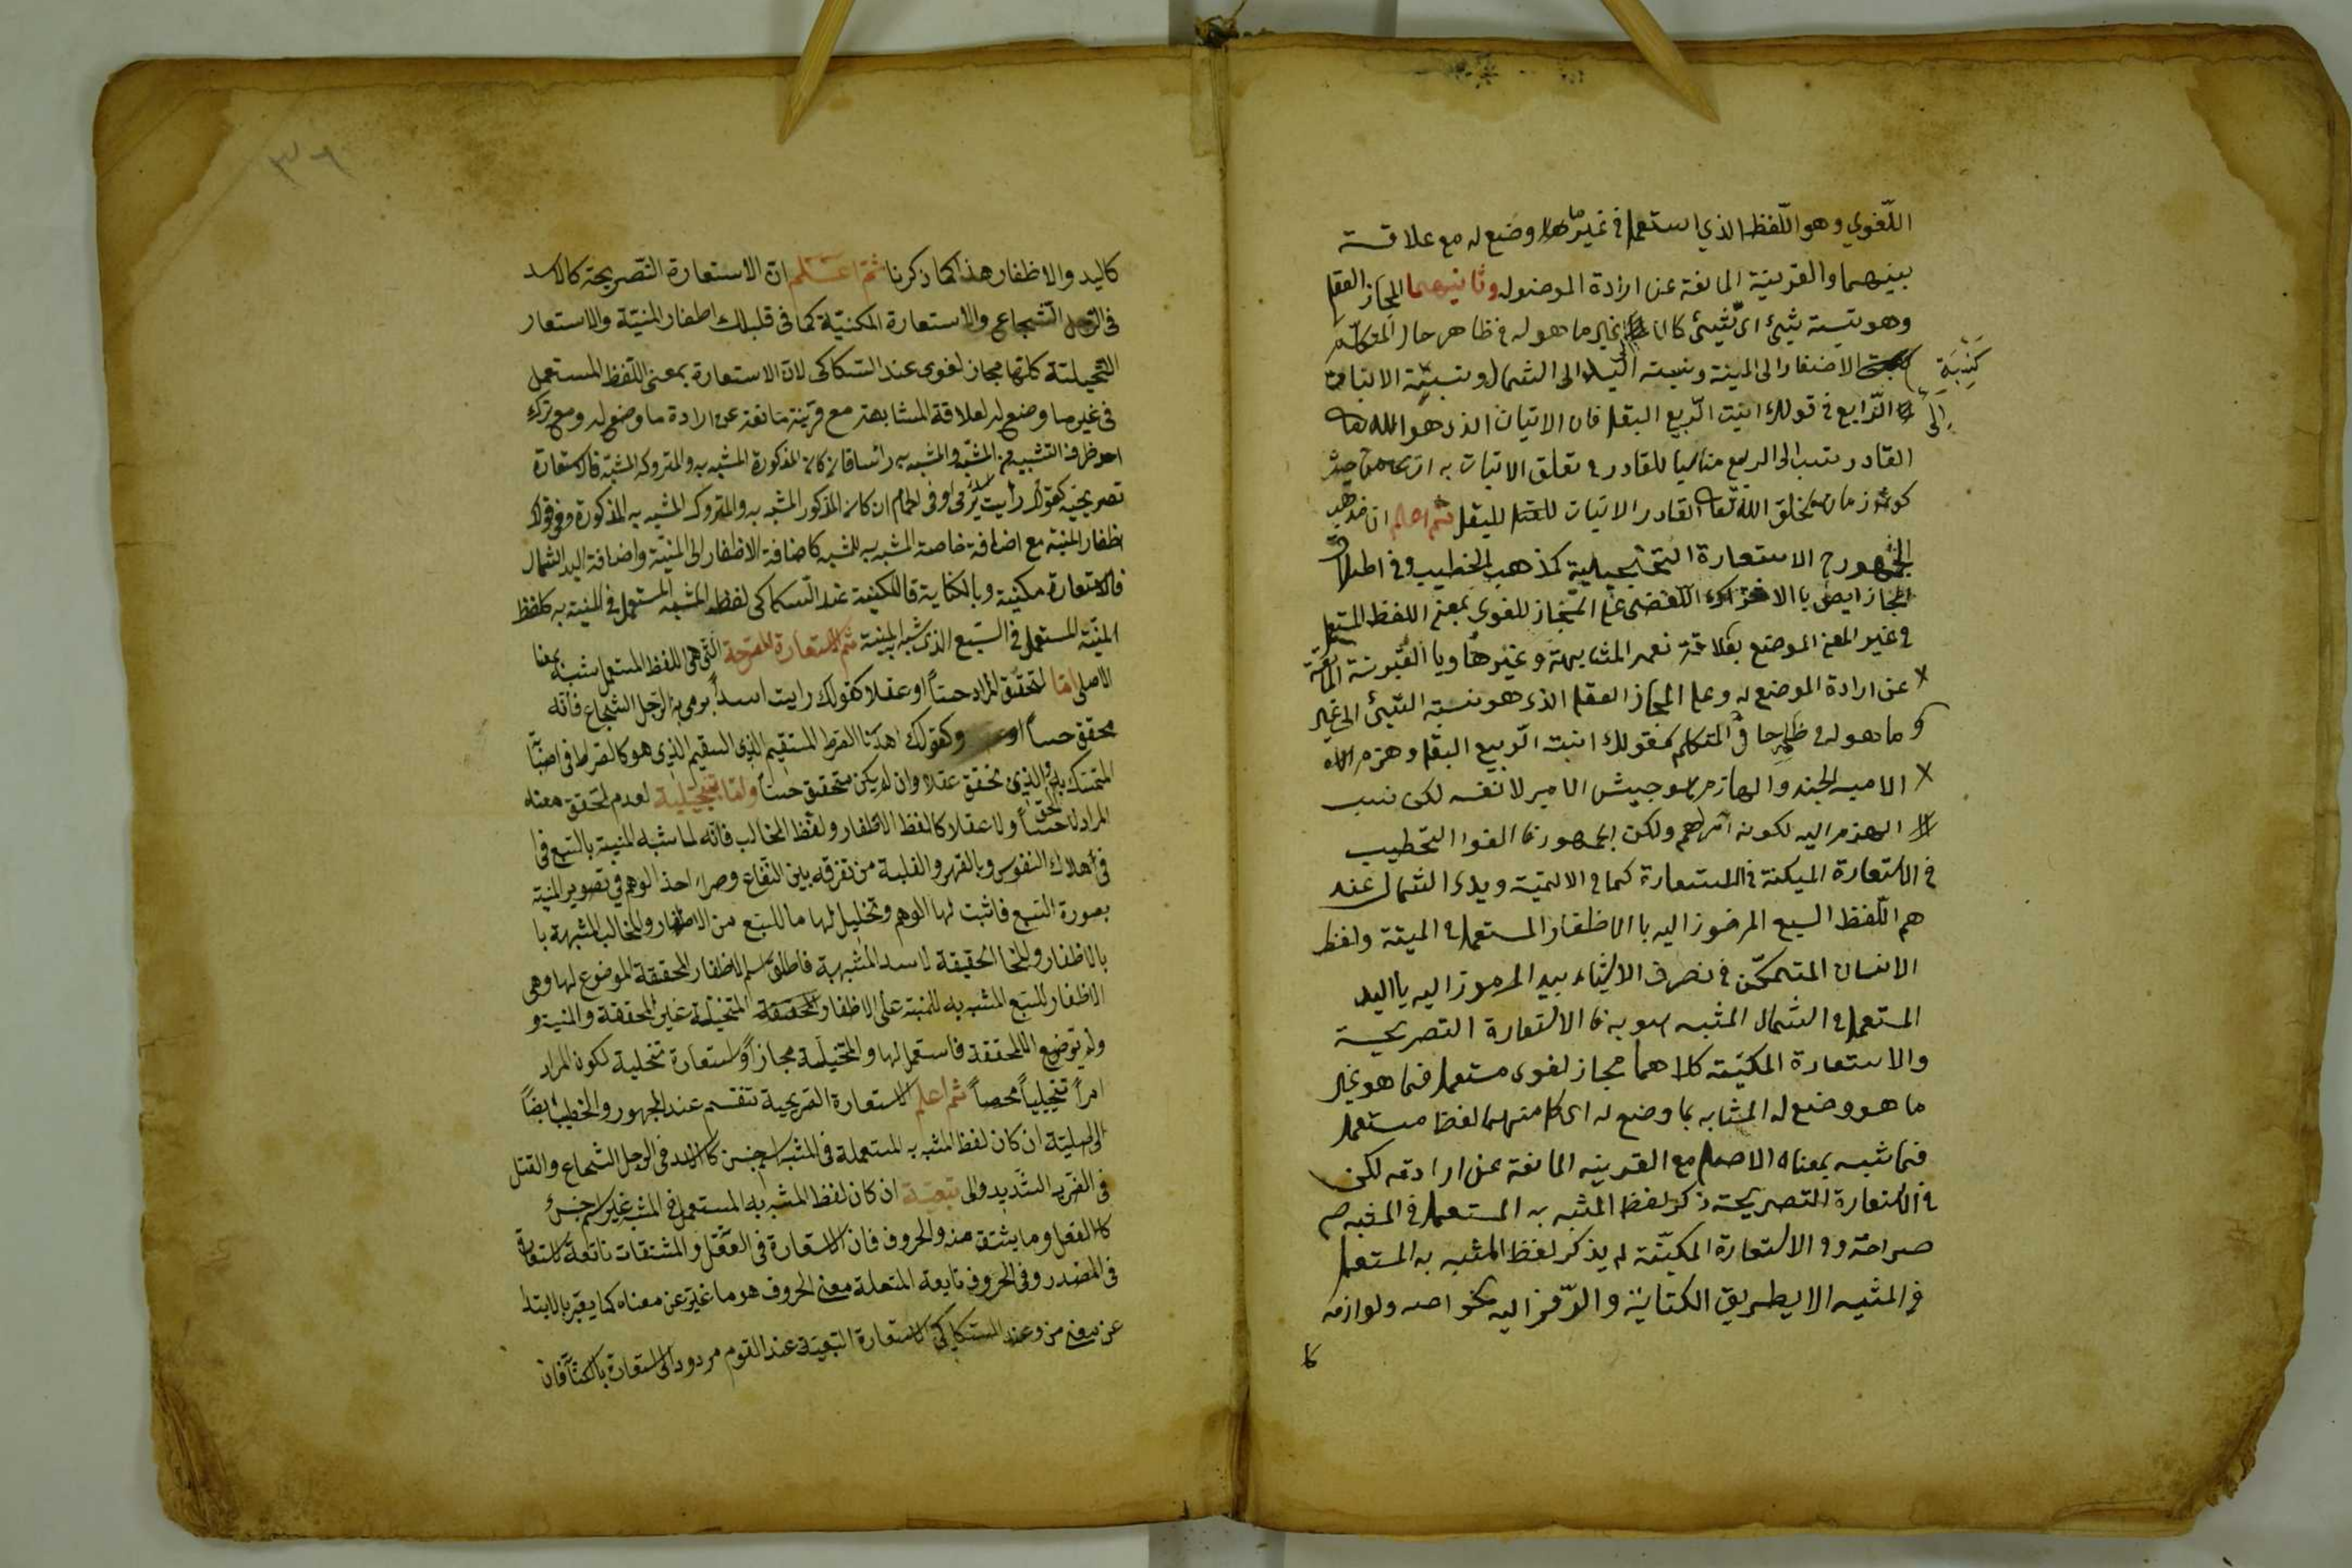 اللّغوي وهو اللّفظ الذي استعمل في غير ما وضع له مع علاقة
بينهما والقرينة المانعة عن ارادة الموضوله وثانيهما المجاز العقلي
وهو نسبة شيئ الى شيئ كان غير ما هو له في ظاهر حال المتكلّم
كنسبة الاضفار الى المنية ونسبة اليد الى الشمال ونسبة الانبات
الى الرّابع في قولك انبت الرّبيع البقل فان الانبات الذي هو لله
القادر ينسب الى الربيع مناسبا للقادر في تعلق الانبات به من حيث
كونه زمان يخلق الله تعا القادر الانبات للبقل ثم اعلم ان مذهب
الجمهور في الاستعارة التخييلية كمذهب الخطيب وفي اطلاق
المجاز ايض بالاشتراك اللفضى على المجاز للغوي بمعنى اللفظ المستعمل
في غير المعنى الموضع بعلاقة نعم المشابهة وغيرها وبا القرينة المانعة
عن ارادة الموضع له وعلى المجاز العقلى الذي هو نسبة الشيئ الى غير
ما هو له في ظاهر حا المتكلم كقولك انبت الرّبيع البقل وهزم
الامير الجند والهازم هو جيش الامير لا نفسه لكن نسب
الهزم اليه لكونه آمراهم ولكن الجمهور خالفوا الخطيب
في الاستعارة المكنة فالاستعارة كما في الاظفار المنية ويد الشمال عند
هم اللّفظ السبع المرموز اليه با الاظفار المستعمل في المية ولفظ
الانسان المتمكّن في تصرف الاشياء بيد المرموز اليه يااليد
المستعمل في الشمال المشبه به فا الاستعارة التصريحية
والاستعارة المكنيّة كلاهما مجاز لغوي مستعمل فيما هو غير
ما هو وضع له المشابه بما وضع له اى كل منهما لفظ مستعمل
فيما شبه بمعناه الاصلى مع القرينه المانعة عن ارادته لكن
في الاستعارة التصريحية ذكر لفظ المشبه به المستعمل في المشبه
صراحة وو الاستعارة المكنيّة لم يذكر لفظ المشبه به المستعمل
في المشبه الا بطريق الكناية والرّمز اليه بخواصه ولوازمه
كا
٣٦
كاليد والاظفار هذا كما ذكرنا ثمّ اعلم انّ الاستعارة التّصريحة كالاسد
في الرّجل الشجاع والاستعارة المكنيّة كما في قلبك اظفار المنيّة والاستعار
التّخييلية كلّها مجاز لغوى عند السّكاكى لانّ الاستعارة بمعنى اللّفظ المستعمل
في غير ما وضع له لعلاقة المشابهة مع قرينة مانعة عن ارادة ما وضع له ومع ترك
احد طرفى التشبيه من المشبّه والمشبه به رأسا فان كان المذكورة المشبه به والمتروك المشبّه فالاستعارة
تصريحيّة كقولك رأيت اسدا يرمى او في الحمام ان كان المذكور المشبه به والمتروك المشبه به المذكورة وفي قولك
اظفار المنية مع اضافة خاصة المشبه به للمشبه كاضافة الاظفار الى المنيّة واضافة اليد الشمال
فالاستعارة مكنية وبالكناية فالمكنية عند السّكاكى لفظ المشبه المستعمل في المشبه به كلفظ
المنيّة المستعمل في السّبع الذى شبه المنية ثم الاستعارة المصرحة الّتى هى اللفظ المستعمل شبه بمعنا
الاصلى امّا لتحقّق المراد حسّاً او عقلا كقولك رايت اسداً يرمى به الرّجل الشجاع فانّه
محقق حساً او وكقولك اهدنا الصراط المستقيم الذى هو كالصراط في
المتمسّك به والّذى تحقق عقلا وان لم يكن متحقق حسّاً وامّا تخيّلية لعدم تحقّق معناه
المراد لا حسّاً ولا عقلا كالفظ الاظفار ولفظ المخالب فانّه لما شبه المنيّة بالسّبع في
في اهلاك النفوس وبالقهر والغلبة من تفرقه بين النّفاع وضرا، اخذ الوهم في تصوير المنيّة
بصورة السّبع فاثبت لها الوهم وتخليل لها ما للسّبع من الاظفار والمخالب المشبهة با
بالاظفار وللمخا الحقيقة لاسد المشبهة به فاطلق اسم الاظفار المحققة الموضوع لها وهى
الاظفار للسّبع المشبه به للمنية على الاظفار المتخيّلة غير المحققة والمنية و
ولم توضع الا للمحققة فاستعمل لها والمتخيّلة مجازاً واستعارة تخلية لكون المراد
امراً تخييلياً محضاً ثم اعلم الاستعارة التصريحية تنقسم عند الجمهور والخطيب ايضاً
الى اصليّة ان كان لفظ المشبه به المستعملة في المشبه اسم جنس كالاسد في الرجل الشجاع والقتل
في الضرب الشّديد والى تبعيّة ان كان لفظ المشبه به المستعمل في المشبه غير اسم جنس
كا الفعل وما يشتق منه والحروف فان الاستعارة في الفعل والمشتقات تابعة لاستعارة
في المصدر وفي الحروف تابعة المتعلة معنى الحروف هو ما عبّر عن معناه كما يعبّر بالابتدا
عن معنى من وعند السكاكى الاستعارة التبعيّة عند القوم مردود الى استعارة بالكنا فان